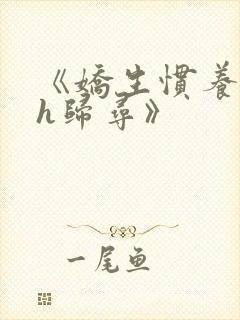 《嬌生慣養
h歸尋》
一尾鱼